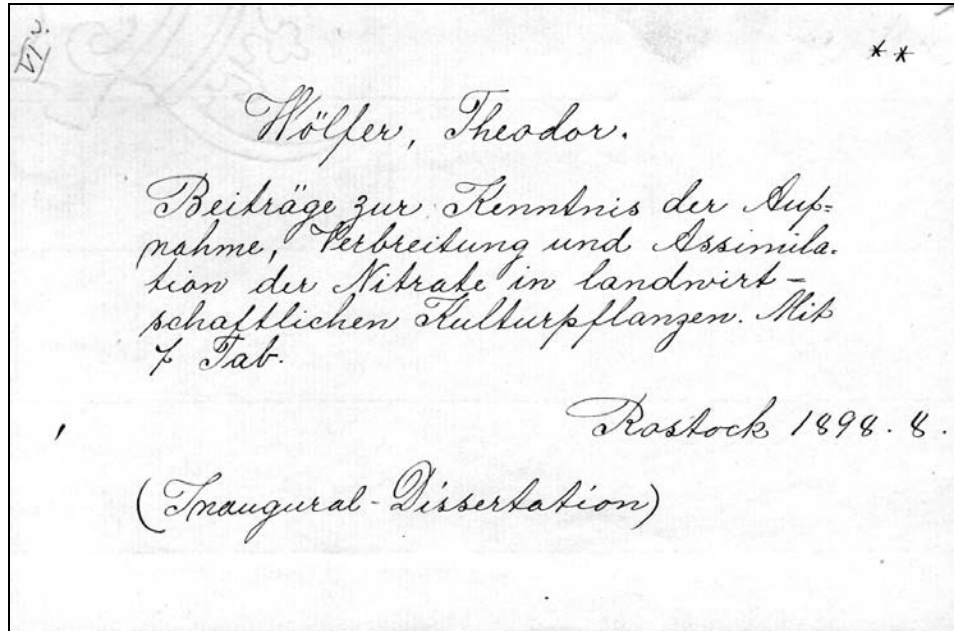 VI.
**
Wölfer, Theodor.
Beiträge zur Kenntnis der Auf-
nahme, Verbreitung und Assimila-
tion der Nitrate in landwirt-
schaftlichen Kulturpflanzen. Mit
7 Tab.
Rostock 1898. 8.
(Inaugural-Dissertation)